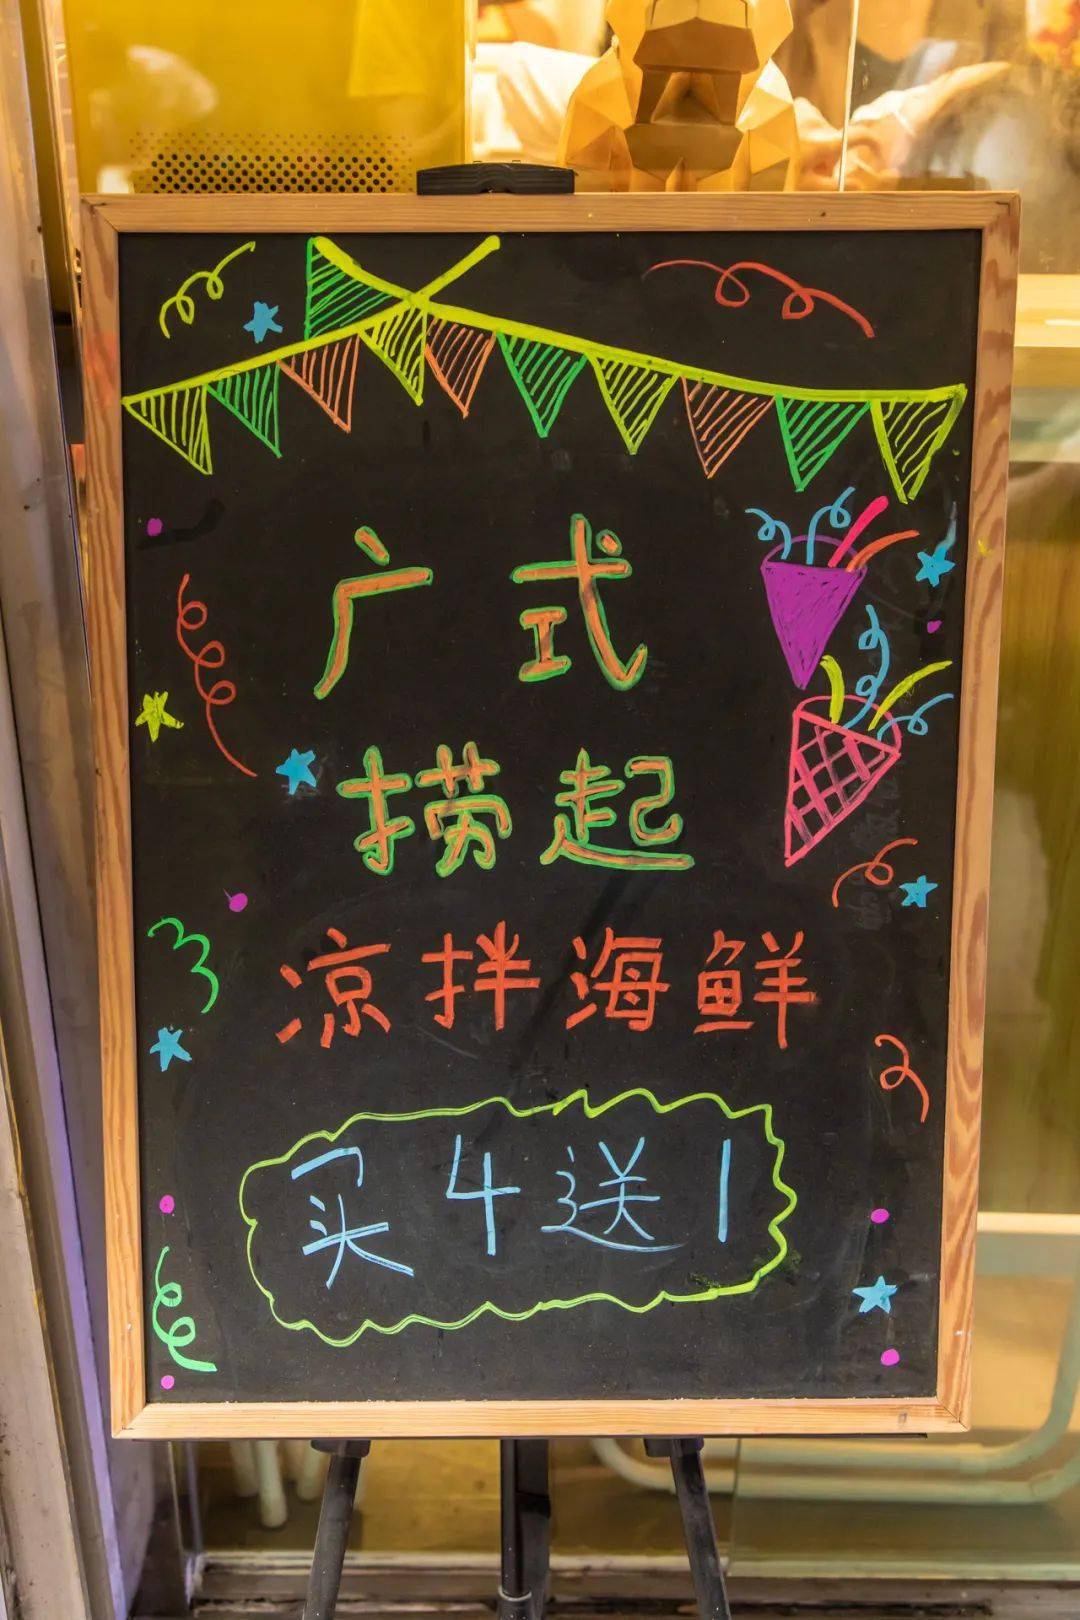 广式
捞起
凉拌海鲜
买4送1